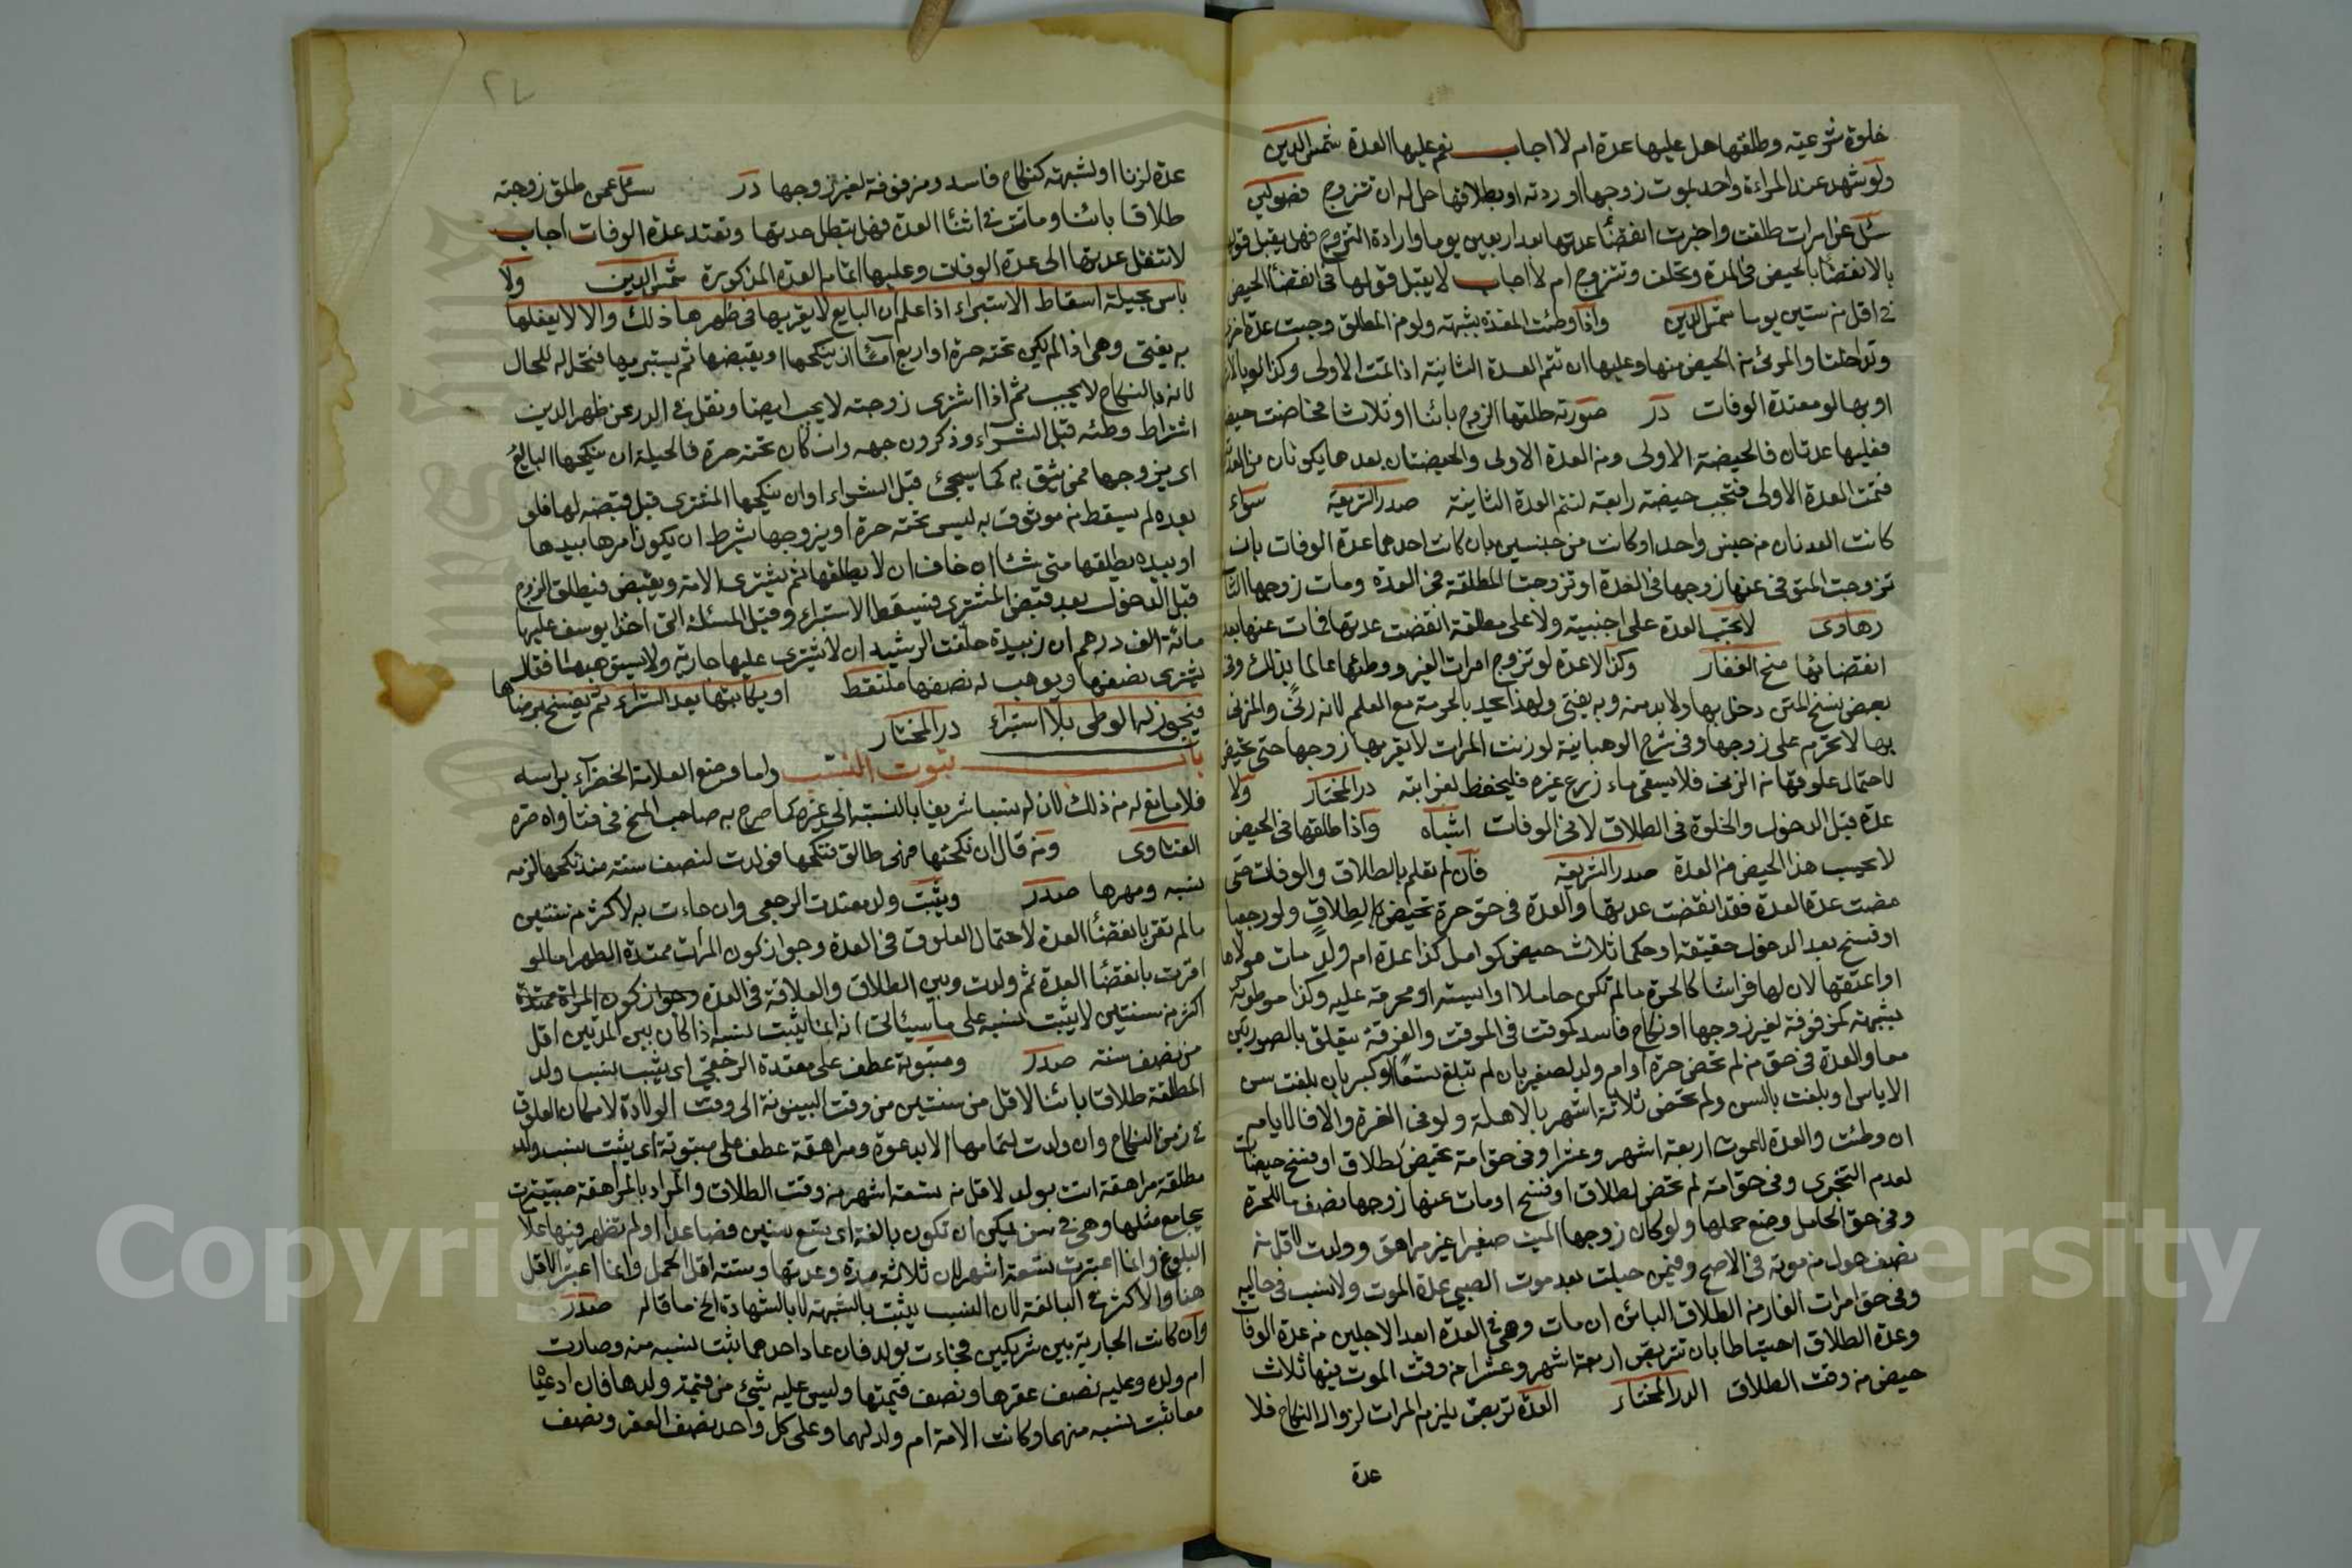 خلوة شرعيته وطلقها هل عليها عدة ام لا اجاب نعم عليها العدة شمس الدين
ولو شهد عند المراءة واحد بموت زوجها او ردته او بطلاقها حل له ان تتزوج فصولين
سئل عن امرات طلقت واخبرت انقضئا عدتها بعد اربعين يوما وارادة التزوج فهل يقبل قولها
بالانقضئا بالحيض في المدة وتحلف وتتزوج ام لا اجاب لا يقبل قولها في انقضئا الحيض
في اقل من ستين يوما شمس الدين واذا وطئت المعتدة بشبهته ولو من المطلق وجبت عدة اخرى
وتداخلتا والمرئ من الحيض منها وعليها ان تتم العدة الثانية اذا تمت الاولى وكذا لو بالاشهر
او بها لو معتدة الوفات در صورته طلقها الزوج بائنا او ثلاثا فحاضت حيضة
فعليها عدتان فالحيضة الاولى من العدة الاولى والحيضتان بعدها يكونان من العدتين
فتمت العدة الاولى فتجب حيضة رابعة لتتم العدة الثانية صدر الشريعة سواء
كانت العدتان من جنس واحد او كانت من جنسين بان كانت احدهما عدة الوفات بان
تزوجت المتوفى عنها زوجها في العدة او تزوجت المطلقة في العدة ومات زوجها الثا
رهاوى لا تجب العدة على اجنبية ولا على مطلقة انقضت عدتها فمات عنها بعد
انقضائها منح الغفار وكذا لا عدة لو تزوج امرات الغير ووطئها عالما بذالك وفى
بعض نسخ المتن دخل بها ولا بد منه وبه يفتى ولهذا يحد بالحرمة مع العلم لانه زنى والمزنى
بها لا تحرم على زوجها وفى شرح الوهبانية لو زنت المرات لا يقربها زوجها حتى تحيض
لاحتمال علوقها من الزنى فلا يسقى ماء زرع غيره فليحفظ لغرابته در المختار ولا
عدة قبل الدخول والخلوة في الطلاق لا فى الوفات اشباه واذا طلقها في الحيض
لا يحسب هذا الحيض من العدة صدر الشريعة فان لم تعلم بالطلاق والوفات حتى
مضت عدة العدة فقد انقضت عدتها والعدة في حق حرة تحيض لطلاق ولو رجعيا
او فسخ بعد الدخول حقيقة او حكما ثلاث حيض كوامل كذا عدة ام ولد مات مولاها
او اعتقها لان لها فراشا كالحرة ما لم تكن حاملا او ايسته او محرمة عليه وكذا موطوئة
بشبهته كمزفوفة لغير زوجها او نكاح فاسد كموقت في الموقت والفرقة يتعلق بالصورتين
معا والعدة في حق من لم تحض حرة او ام ولد لصغر بان لم تبلغ تسعا او كبر بان بلغت سن
الاياس او بلغت بالسن ولم تحض ثلاثة اشهر بالاهلة ولو في الغرة والا فبالايام
ان وطئت والعدة للموت اربعة اشهر وعشرا وفى حق امة تحيض لطلاق او فسخ حيضتان
لعدم التجزى وفى حق امة لم تحض لطلاق او فسخ او مات عنها زوجها نصف ما للحرة
وفى حق الحامل وضع حملها ولو كان زوجها الميت صغيرا غير مراهق وولدت لاقل من
نصف حول من موته فى الاصح وفيمن حبلت بعد موت الصبي عدة الموت ولا نسب فى حاليه
وفى حق امرات الفار من الطلاق البائن ان مات وهى في العدة ابعد الاجلين من عدة الوفات
وعدة الطلاق احتياطا بان تتربص اربعة اشهر وعشرا من وقت الموت فيها ثلاث
حيض من وقت الطلاق الدر المختار العدة تربص يلزم المرات لزوال النكاح فلا
عدة
٢٧
عدة لزنا او لشبهته كنكاح فاسد ومزفوفة لغير زوجها در سئل عمن طلق زوجته
طلاقا بائنا وماتت في اثنا العدة فهل تبطل عدتها وتعتد عدة الوفات اجاب
لا تنتقل عدتها الى عدة الوفات وعليها اتمام العدة المذكورة شمس الدين ولا
باس بحيلة اسقاط الاستبراء اذا علم ان البايع لا يقربها في طهرها ذلك والا لا يفعلها
به يفتى وهى اذا لم يكن تحته حرة او اربع امآئا ان ينكحها او يقبضها ثم يستبريها فتحل له للحال
لانه بالنكاح لا يجب ثم اذا اشترى زوجته لا يجب ايضا ونقل في الدرر عن ظهر الدين
اشتراط وطئه قبل الشراء وذكرون جهه وان كان تحته حرة فالحيلة ان ينكحها البايع
اى يزوجها ممن يثق به كما سيجئ قبل الشراء او ان ينكحها المشترى قبل قبضه لها فلو
بعده لم يسقط من موثوق به ليس تحته حرة او يزوجها بشرط ان يكون امرها بيدها
او بيده يطلقها متى شئا ان خاف ان لا يطلقها ثم يشترى الامة ويقبض فيطلق الزوج
قبل الدخول بعد قبض المشترى فيسقط الاستبراء وقيل المسئلة التى اخذ ابو يوسف عليها
مائة الف درهم ان زبيدة حلفت الرشيد ان لا يشترى عليها جارية ولا يستوهبها فقال
يشترى نصفها ويوهب له نصفها ملتقط او يكاتبها بعد الشراء ثم يفسخ برضاها
فيجوز له الوطى بلا استبراء در المختار
باب ثبوت النسب واما وضع العلامة الخضراء براسه
فلا مانع له من ذلك لان له نسبا شريفا بالنسبة الى غيره كما صرح به صاحب المنح في فتاواه قره
الفتاوى ومن قال ان نكحتها فهى طالق فنكحها فولدت لنصف سنته منذ نكحها لزمه
نسبه ومهرها صدر ويثبت ولد معتدت الرجعى وان جاءت به لاكثر من سنتين
ما لم تقر بانقضئا العدة لاحتمال العلوق فى العدة وجواز كون المرات ممتدة الطهر اما لو
اقرت بانقضئا العدة ثم ولدت وبين الطلاق والعلاقة فى العدة وجواز كون المراة ممتدة
اكثر من سنتين لا يثبت نسبه على ما سيئاتى انه انما يثبت نسبه اذا كان بين المدتين اقل
من نصف سنته صدر ومبتوتة عطف على معتدة الرجعى اى يثبت نسب ولد
المطلقة طلاقا بائنا لاقل من سنتين من وقت البينونة الى وقت الولادة لامكان العلوق
في زمن النكاح وان ولدت لتمامها لا الا بدعوة ومراهقة عطف على مبتوتة اى يثبت نسب ولد
مطلقة مراهقة اتت بولد لاقل من تسعة اشهر من وقت الطلاق والمراد بالمراهقة صبية
يجامع مثلها وهى في سن يمكن ان تكون بالغة اى بتسع سنين فصاعدا ولم تظهر فيها علا
البلوغ وانما اعتبرت تسعة اشهر لان ثلاثة مدة وعدتها وستة اقل الحمل وانما اعتبر الاقل
هنا والاكثر في البالغة لان النسب يثبت بالشبهة لا بالشهادة الخ ما قاله صدر
وان كانت الجارية بين شريكين فجاءت بولد فان عاد احدهما ثبت نسبه منه وصارت
ام ولده وعليه نصف عقرها ونصف قيمتها وليس عليه شيئ من قيمة ولدها فان ادعيا
معا ثبت نسبه منهما وكانت الامة ام ولد لهما وعلى كل واحد نصف العقر ونصف
Copyright © King Saud University